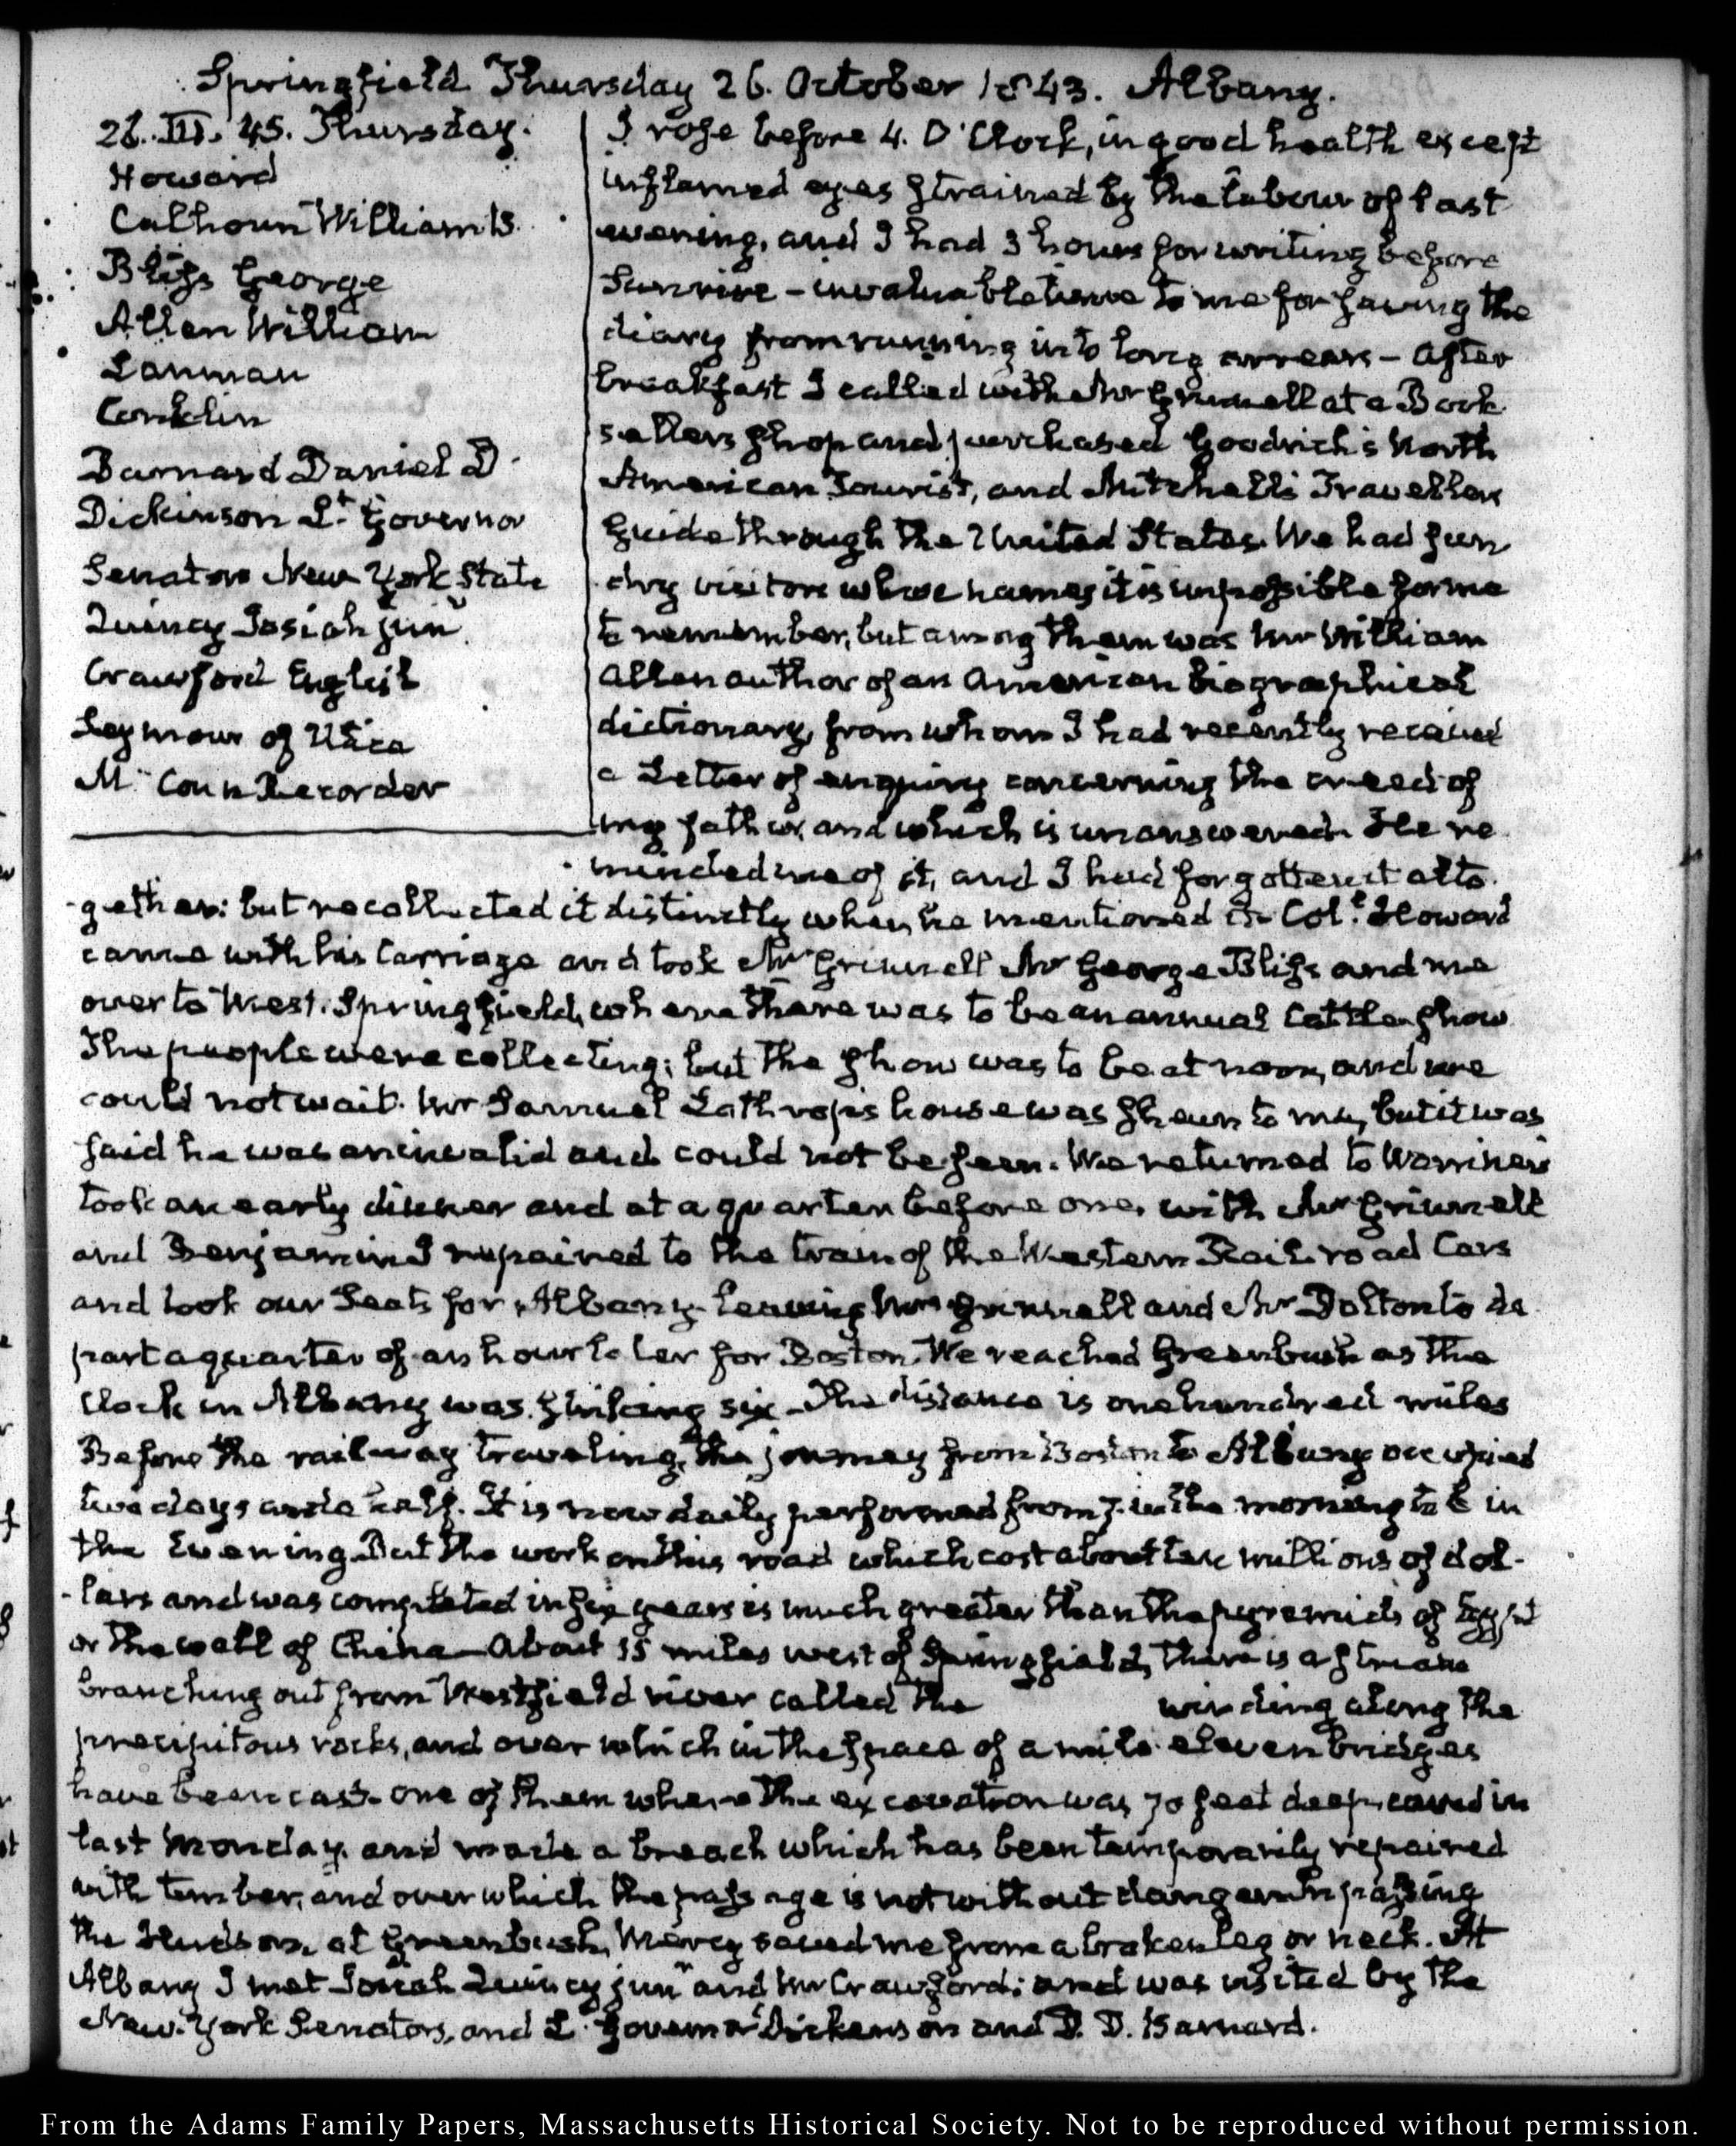 Springfield Thursday 26. October 1843. Albany.
26. III. 45. Thursday.
Howard
Calhoun William B.
Bliss George
Allen William
Lanman
Conklin
Barnard Daniel D.
Dickinson Lt. Governor
Senators New York State
Quincy Josiah junr.
Crawford English
Seymour of Utica
McCoun Recorder
I rose before 4. O'Clock, in good health except
inflamed eyes strained by the labour of last
evening, and I had 3 hours for writing before
Sunrise - invaluable time to me for saving the
diary from running into long arrears - After
breakfast I called with Mr Grinnell at a Book
sellers shop and purchased Goodrich's North
American Tourist, and Mitchell's Travellers
Guide through the United States. We had sun
dry visitors whose names it is impossible for me
to remember, but among them was Mr William
Allen author of an American biographical
dictionary, from whom I had recently received
a Letter of enquiry concerning the creed of
my father, and which is unanswered. He re
minded me of it, and I had forgotten it alto
gether: but recollected it distinctly when he mentioned it. Coll. Howard
came with his Carriage and took Mr Grinnell Mr George Bliss and me
over to West-Springfield, where there was to be an annual Cattle-show
The people were collecting; but the show was to be at noon, and we
could not wait. Mr Samuel Lathrop's house was shewn to me, but it was
said he was an invalid and could not be seen. We returned to Warriner's
took an early dinner and at a quarter before one, with Mr Grinnell
and Benjamin I repaired to the train of the Western Rail-road Cars
and took our Seats for Albany. leaving Mrs Grinnell and Mr Dolton to de
part a quarter of an hour later for Boston. We reached Greenbush as the
Clock in Albany was striking six - The distance is one hundred miles
Before the railway traveling, the journey from Boston to Albany occupied
two days and a half. It is now daily performed from 7. in the morning to 6 in
the Evening. But the work on this road which cost about ten millions of dol-
-lars and was completed in six years is much greater than the pyramids of Egypt
or the wall of China - About 15 miles west of Springfield, there is a stream
branching out from Westfield river called the winding along the
precipitous rocks, and over which in the space of a mile eleven bridges
have been cast - one of them where the excavation was 70 feet deep, caved in
last Monday, and made a breach which has been temporarily repaired
with timber, and over which the passage is not without danger. In passing
the Hudson, at Greenbush, Mercy saved me from a broken leg or neck. At
Albany I met Josiah Quincy junr and Mr Crawford; and was visited by the
New-York Senators, and Lt. Governor Dickenson and D. D. Barnard.
From the Adams Family Papers, Massachusetts Historical Society. Not to be reproduced without permission.